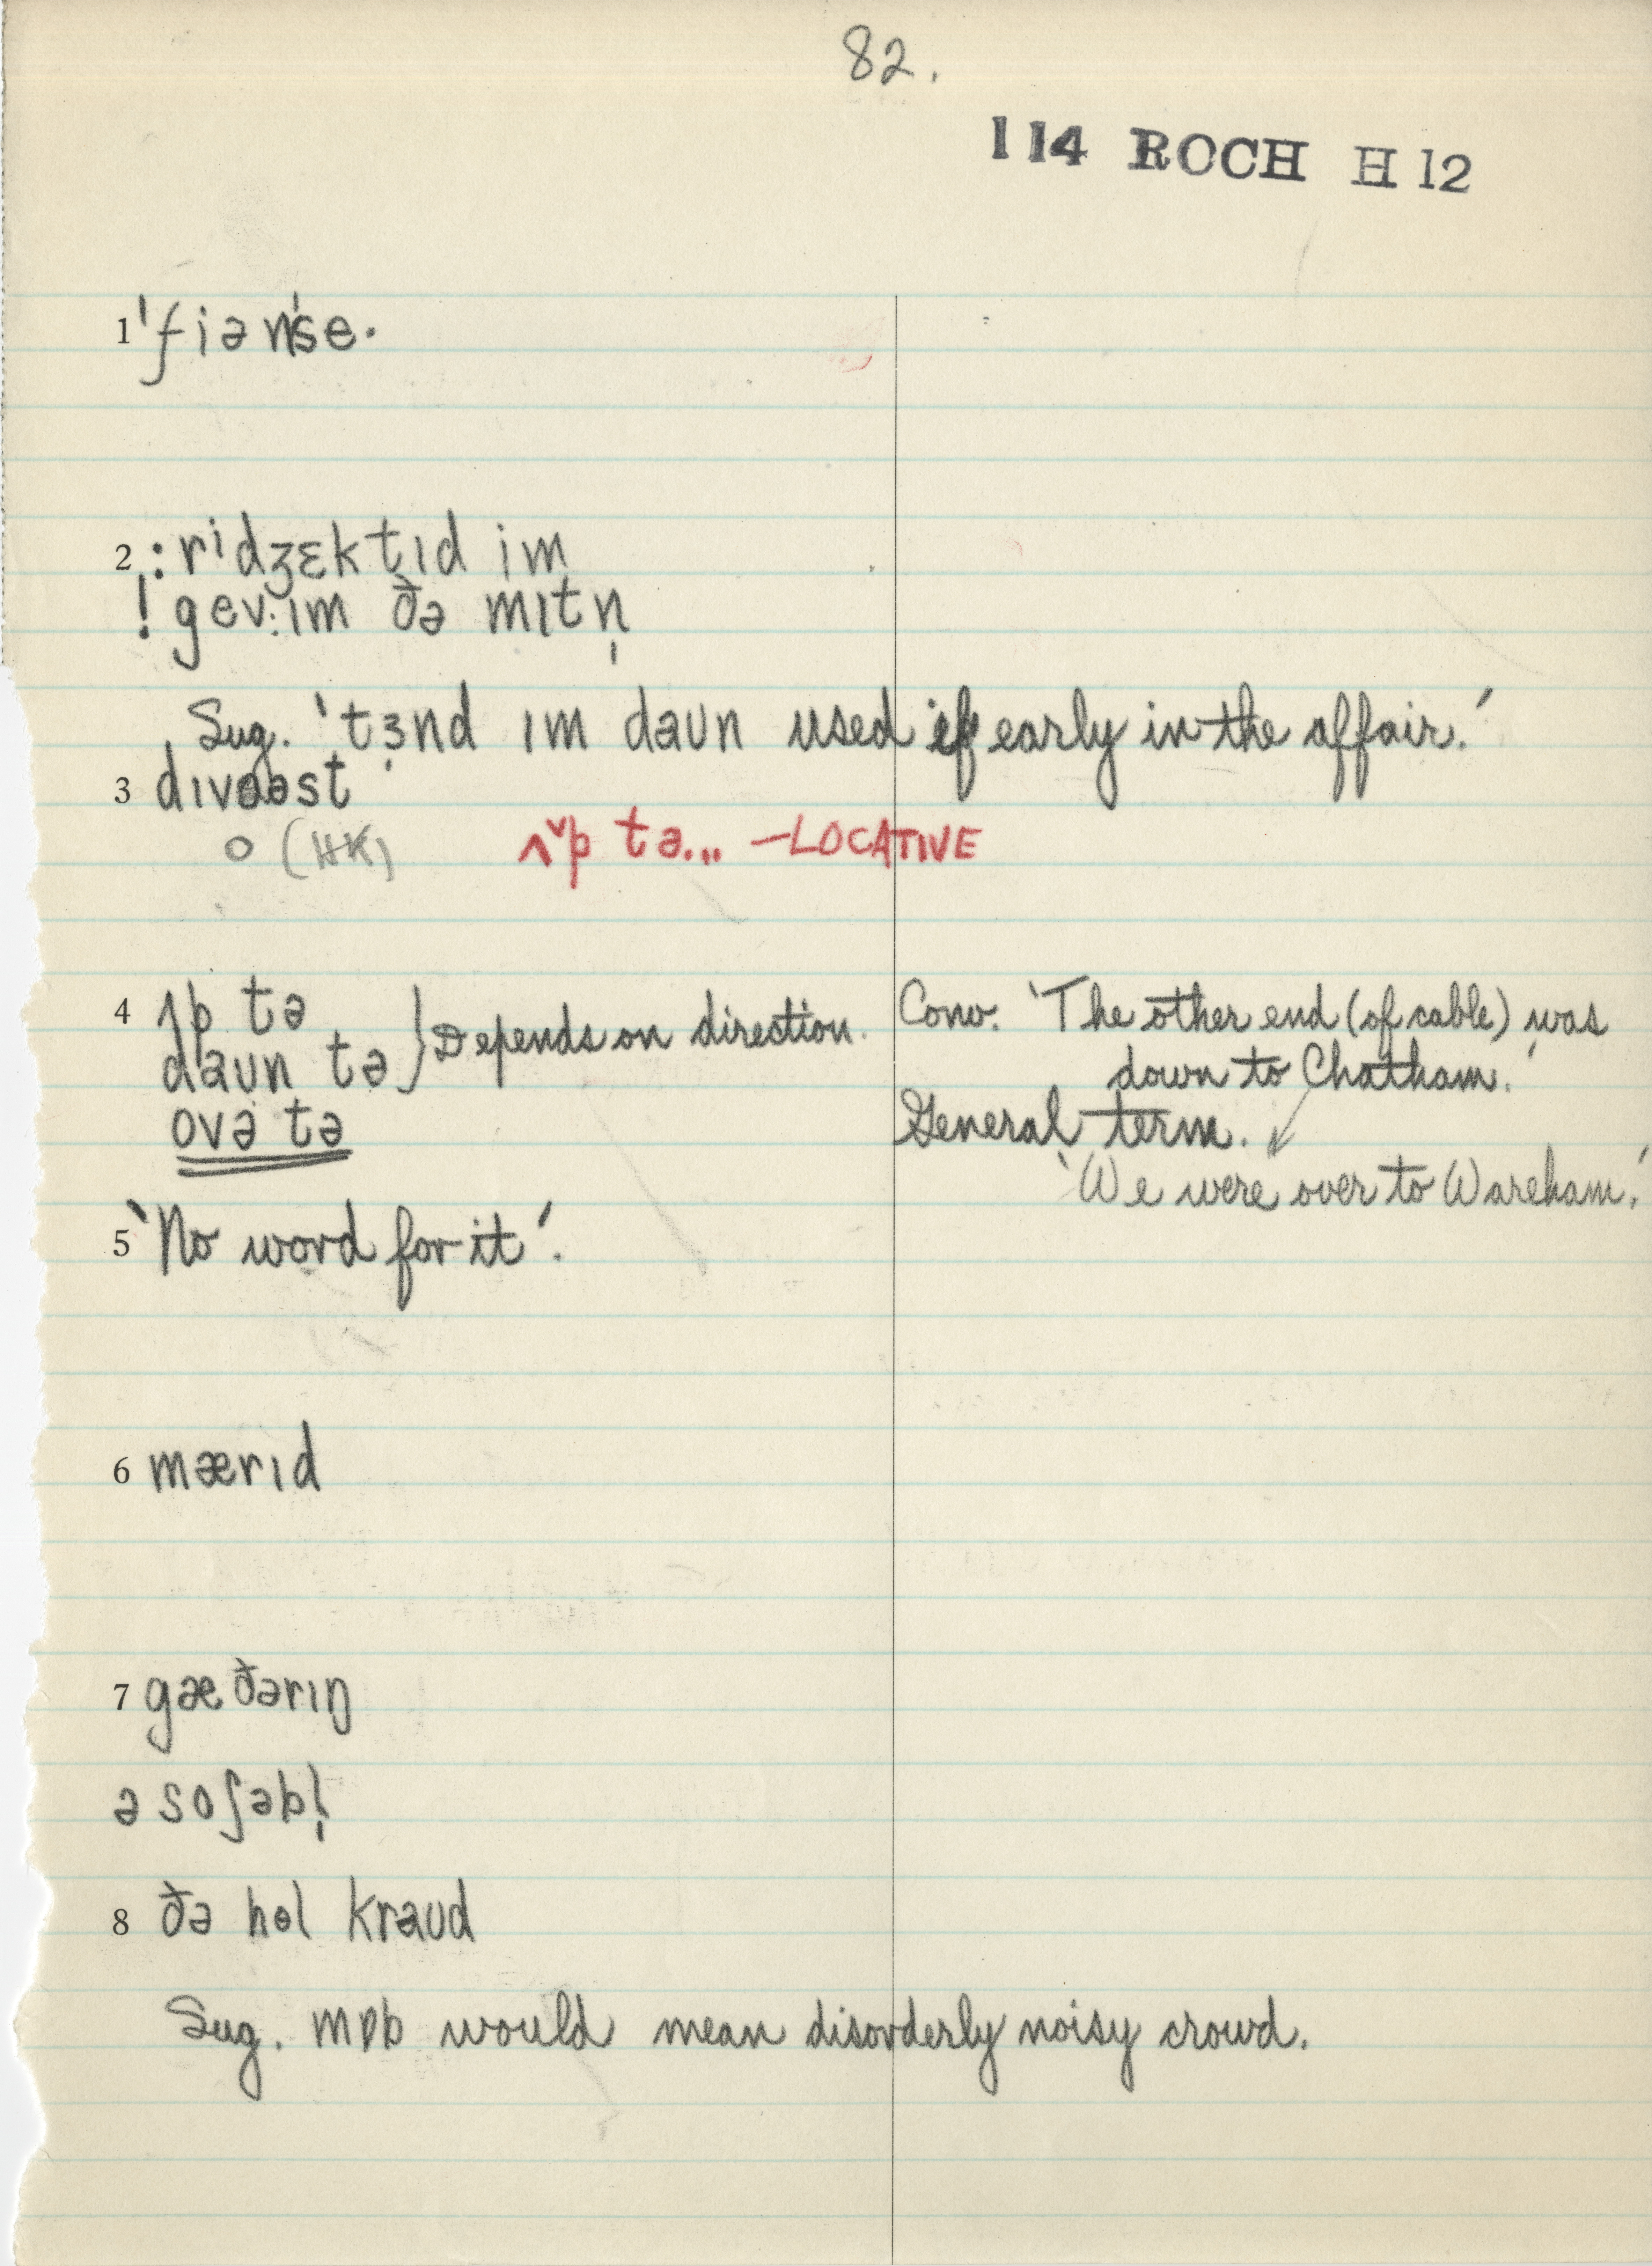 82.
114 ROCH H 12
1 ˈfiənˈse·
2 : ridʒɛktɪd im
! gev:ɪm ðə mɪtn̩
Sug. 'tɜnd ɪm daʊn used if early in the affair.'
3 dɪvoəst
o (HK)
ʌ˅p tə... – LOCATIVE
4 ʌp tə } Depends on direction. Conv. 'The other end (of cable) was
daʊn tə down to Chatham.'
ovə tə General term.
'We were over to Wareham.'
5 'No word for it'.
6 mærɪd
7 gæðərɪŋ
ə soʃəbl̩
8 ðə hɵl kraʊd
Sug. mɒb would mean disorderly noisy crowd.